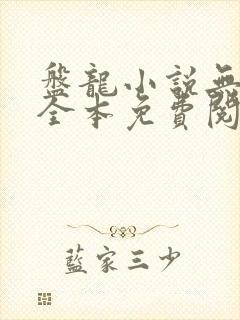 盤龍小說無
全本免費閱
藍家三少